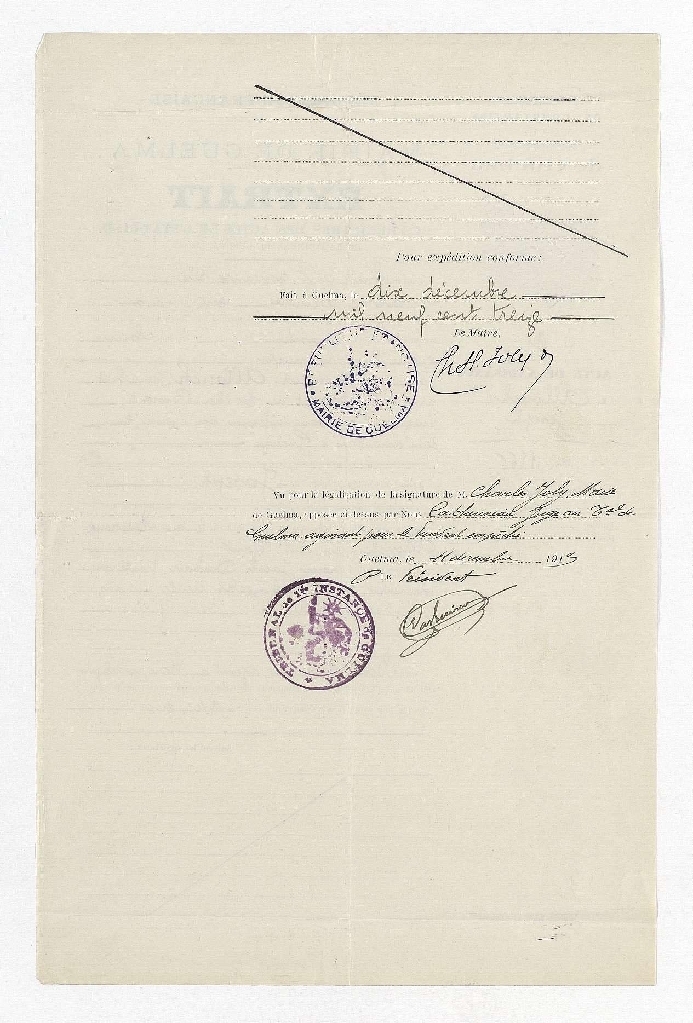 Pour expédition conforme:
Fait à Guelma, le dix décembre
mil neuf cent treize
Le Maire,
Ch. H. Joly
RÉPUBLIQUE FRANÇAISE
MAIRIE DE GUELMA
Vu pour la légalisation de la signature de M. Charles Joly, Maire
de Guelma, apposée ci-dessus par Nous Juge au Tal de
Guelma agissant pour le Président empêché.
Guelma, le 11 décembre 1913
P. le Président
TRIBUNAL de 1re INSTANCE de GUELMA